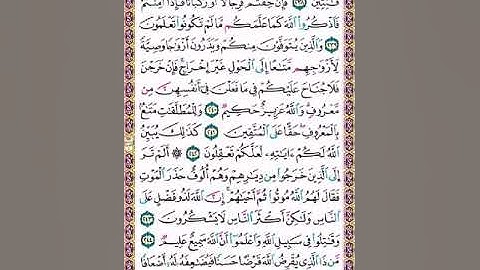 قَٰنِتِينَ ﴿٢٣٨﴾ فَإِنْ خِفْتُمْ فَرِجَالًا أَوْ رُكْبَانًا فَإِذَا أَمِنتُمْ
فَاذْكُرُوا اللَّهَ كَمَا عَلَّمَكُم مَّا لَمْ تَكُونُوا تَعْلَمُونَ
﴿٢٣٩﴾ وَالَّذِينَ يُتَوَفَّوْنَ مِنكُمْ وَيَذَرُونَ أَزْوَٰجًا وَصِيَّةً
لِّأَزْوَٰجِهِم مَّتَٰعًا إِلَى الْحَوْلِ غَيْرَ إِخْرَاجٍ فَإِنْ خَرَجْنَ
فَلَا جُنَاحَ عَلَيْكُمْ فِي مَا فَعَلْنَ فِي أَنفُسِهِنَّ مِن
مَّعْرُوفٍ وَاللَّهُ عَزِيزٌ حَكِيمٌ ﴿٢٤٠﴾ وَلِلْمُطَلَّقَٰتِ مَتَٰعٌ
بِالْمَعْرُوفِ حَقًّا عَلَى الْمُتَّقِينَ ﴿٢٤١﴾ كَذَٰلِكَ يُبَيِّنُ
اللَّهُ لَكُمْ ءَايَٰتِهِ لَعَلَّكُمْ تَعْقِلُونَ ﴿٢٤٢﴾ ۞ أَلَمْ تَرَ
إِلَى الَّذِينَ خَرَجُوا مِن دِيَٰرِهِمْ وَهُمْ أُلُوفٌ حَذَرَ الْمَوْتِ
فَقَالَ لَهُمُ اللَّهُ مُوتُوا ثُمَّ أَحْيَٰهُمْ إِنَّ اللَّهَ لَذُو فَضْلٍ عَلَى
النَّاسِ وَلَٰكِنَّ أَكْثَرَ النَّاسِ لَا يَشْكُرُونَ ﴿٢٤٣﴾
وَقَٰتِلُوا فِي سَبِيلِ اللَّهِ وَاعْلَمُوا أَنَّ اللَّهَ سَمِيعٌ عَلِيمٌ ﴿٢٤٤﴾
مَّن ذَا الَّذِي يُقْرِضُ اللَّهَ قَرْضًا حَسَنًا فَيُضَٰعِفَهُ لَهُ أَضْعَافًا